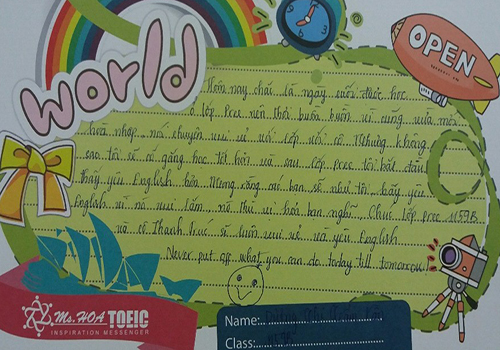 world
OPEN
Hôm nay chắc là ngày cuối được học
ở lớp Pres nên thôi buồn buồn vì cũng vừa mới
hoà nhập nói chuyện vui vẻ với lớp với cô. Nhưng không
sao tôi sẽ cố gắng học tốt hơn và sau lớp pres tôi bắt đầu
thấy yêu English hơn. Mong rằng các bạn sẽ như tôi hãy yêu
English vì nó vui lắm, nó thú vị hơn bạn nghĩ. Chúc lớp pres
và cô Thanh Trúc sẽ luôn vui vẻ và yêu English
Never put off what you can do today till tomorrow!
Ms. HOA TOEIC
INSPIRATION MESSENGER
Name:
Class: